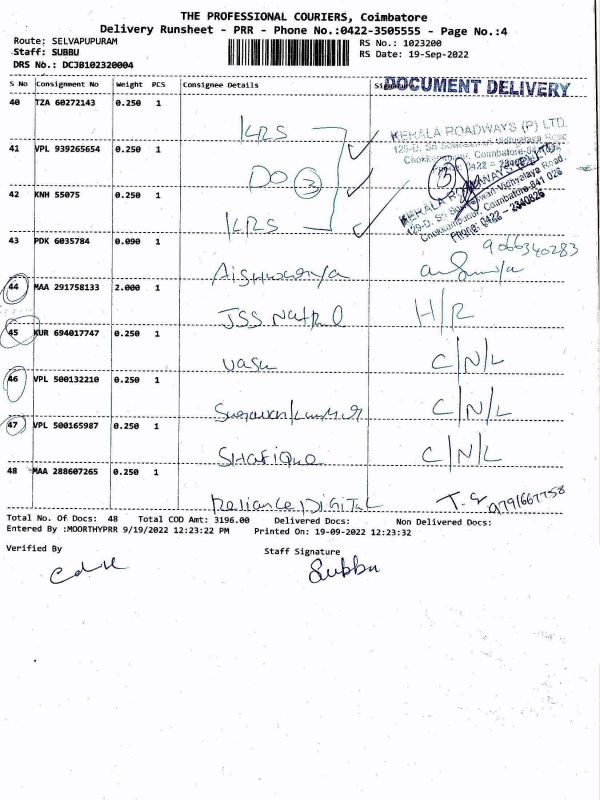 THE PROFESSIONAL COURIERS, Coimbatore
Delivery Runsheet - PRR - Phone No.:0422-3505555 - Page No.:4
Route: SELVAPUPURAM
RS No.: 1023200
Staff: SUBBU
RS Date: 19-Sep-2022
DRS No.: DCJB102320004
S No Consignment No Weight PCS Consignee Details
DOCUMENT DELIVERY
40 TZA 60272143 0.250 1
KRS
KERALA ROADWAYS (P) LTD.
41 VPL 939265654 0.250 1
DO 3
42 KNH 55075 0.250 1
KRS
KERALA ROADWAYS (P) LTD.
Chokkampudur, Coimbatore-641 026
Phone: 0422 - 2340626
43 PDK 6035784 0.090 1
9066340283
Aishwarya
44 MAA 291758133 2.000 1
JSS H/R
45 KUR 694017747 0.250 1
Vasu C/N/L
46 VPL 500132210 0.250 1
C/N/L
47 VPL 500165987 0.250 1
SHafique C/N/L
48 MAA 288607265 0.250 1
Reliance DIGITAL
Total No. Of Docs: 48 Total COD Amt: 3196.00 Delivered Docs: Non Delivered Docs:
Entered By :MOORTHYPRR 9/19/2022 12:23:22 PM Printed On: 19-09-2022 12:23:32
Verified By Staff Signature
Subbu